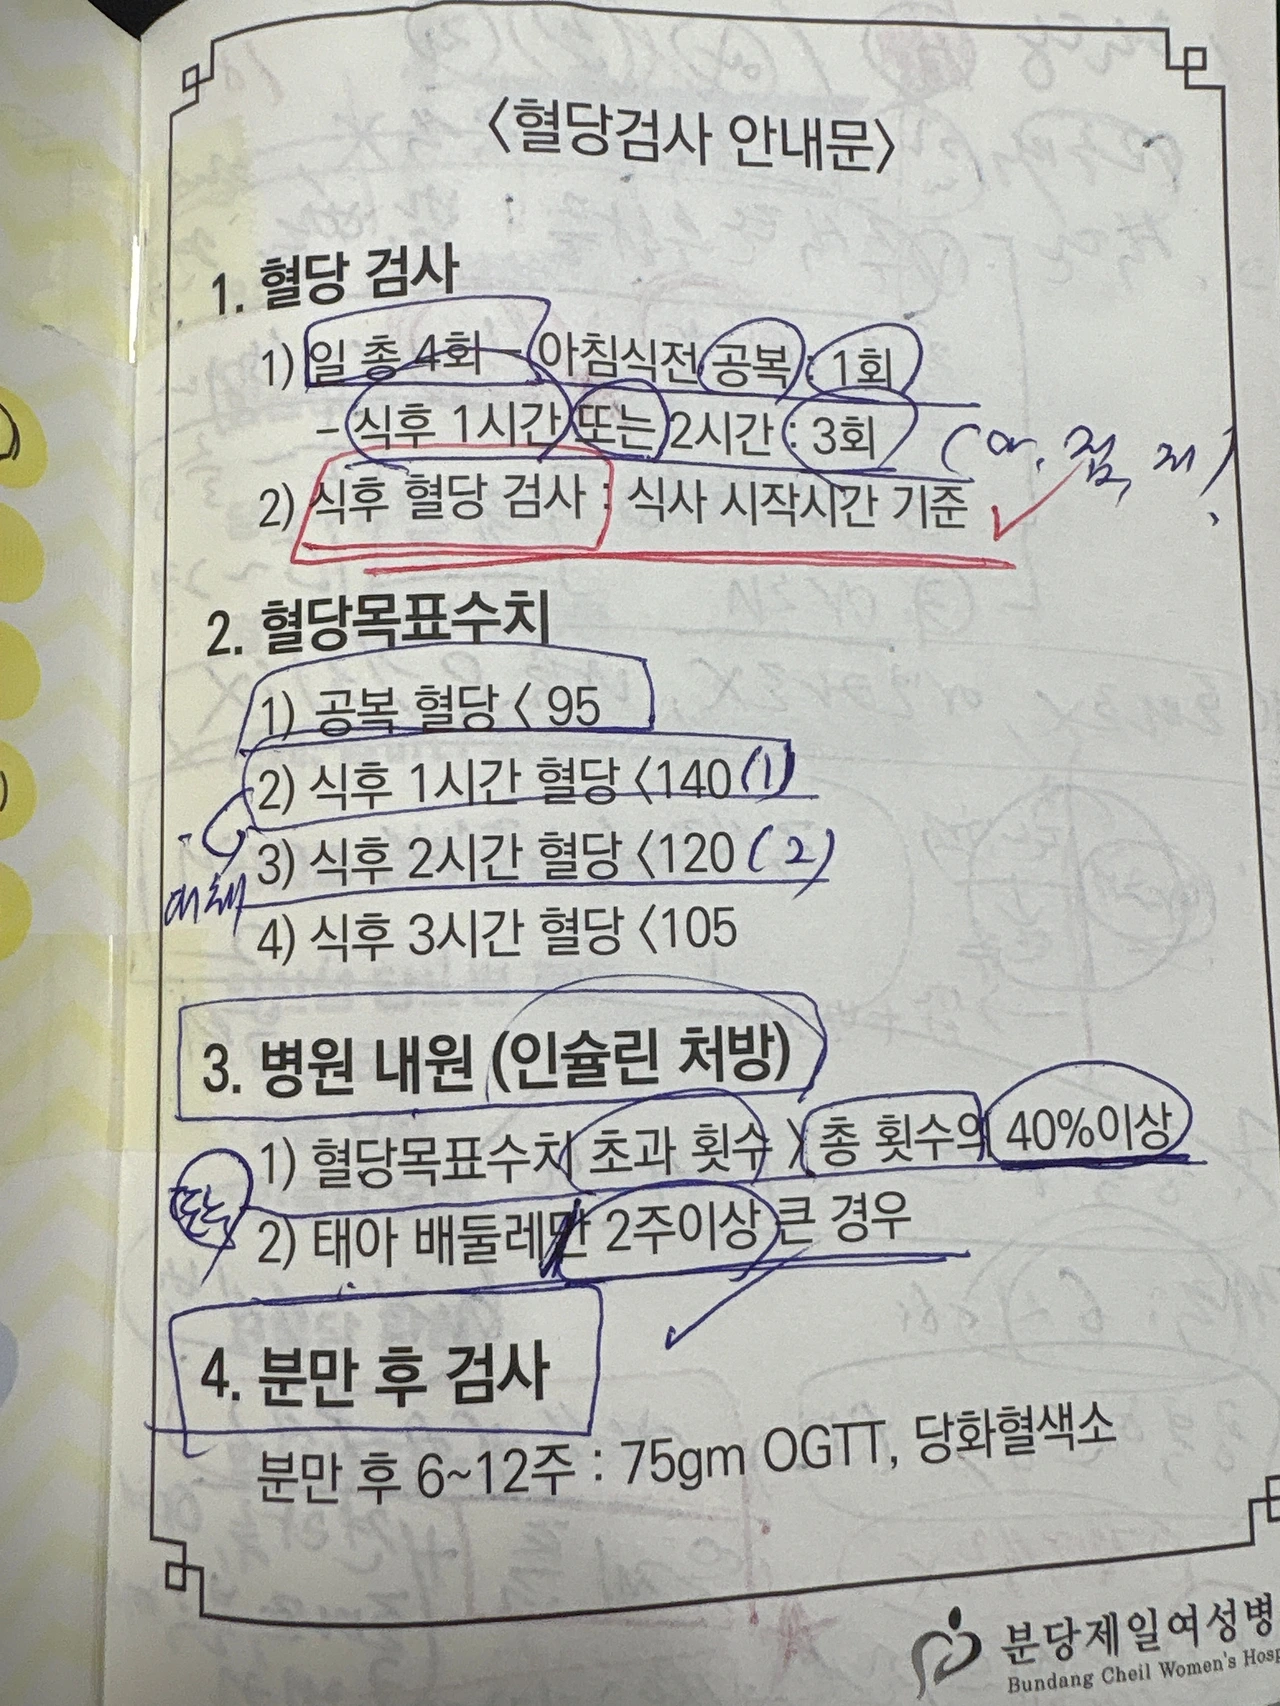 <혈당검사 안내문>
1. 혈당 검사
1) 일 총 4회 - 아침식전 공복 : 1회
- 식후 1시간 또는 2시간 : 3회 (아, 점, 저)
2) 식후 혈당 검사 : 식사 시작시간 기준
2. 혈당목표수치
1) 공복 혈당 < 95
2) 식후 1시간 혈당 <140 (1)
3) 식후 2시간 혈당 <120 (2)
4) 식후 3시간 혈당 <105
3. 병원 내원 (인슐린 처방)
1) 혈당목표수치 초과 횟수 > 총 횟수의 40%이상
또는
2) 태아 배둘레만 2주이상 큰 경우
4. 분만 후 검사
분만 후 6~12주 : 75gm OGTT, 당화혈색소
분당제일여성병
Bundang Cheil Women's Hosp